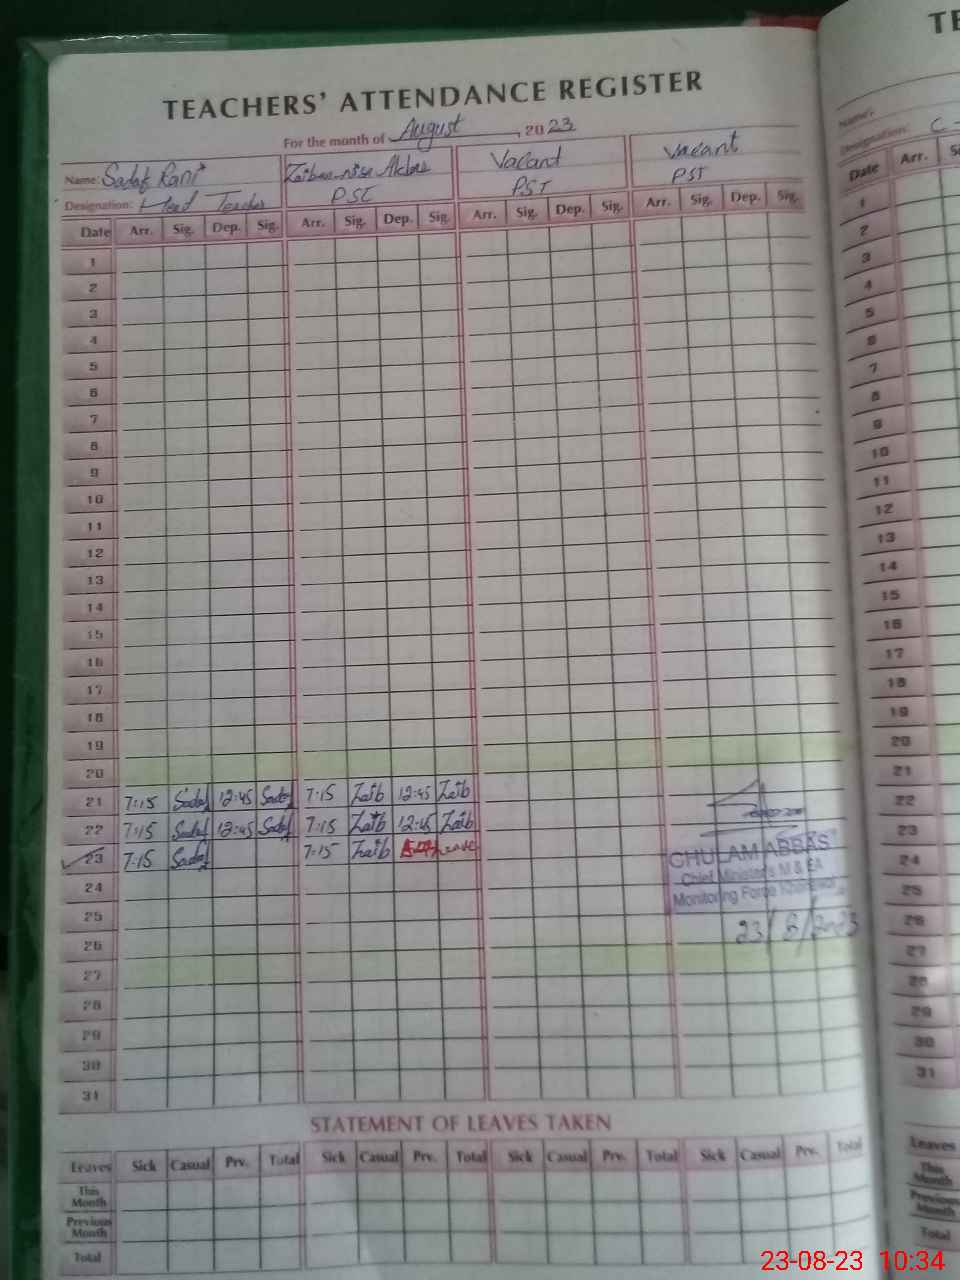 TEACHERS' ATTENDANCE REGISTER
For the month of August, 2023
Name: Sadaf Rani Zaibun-nisa Akhtar Vacant Vacant
Designation: Head Teacher PST PST PST
Date Arr. Sig. Dep. Sig. Arr. Sig. Dep. Sig. Arr. Sig. Dep. Sig. Arr. Sig. Dep. Sig.
1
2
3
4
5
6
7
8
9
10
11
12
13
14
15
16
17
18
19
20
21 7:15 Sadaf 12:45 Sadaf 7:15 Zaib 12:45 Zaib
22 7:15 Sadaf 12:45 Sadaf 7:15 Zaib 12:45 Zaib
23 7:15 Sadaf 7:15 Zaib Leave
GHULAM ABBAS
Chief Minister's M & EA
Monitoring Force Khanewal
23/8/2023
24
25
26
27
28
29
30
31
STATEMENT OF LEAVES TAKEN
Leaves Sick Casual Prv. Total Sick Casual Prv. Total Sick Casual Prv. Total Sick Casual Prv. Total
This Month
Previous Month
Total
TE
Name:
Designation: C
Date Arr. Si
1
2
3
4
5
6
7
8
9
10
11
12
13
14
15
16
17
18
19
20
21
22
23
24
25
26
27
28
29
30
31
Leaves
This Month
Previous Month
Total
23-08-23 10:34